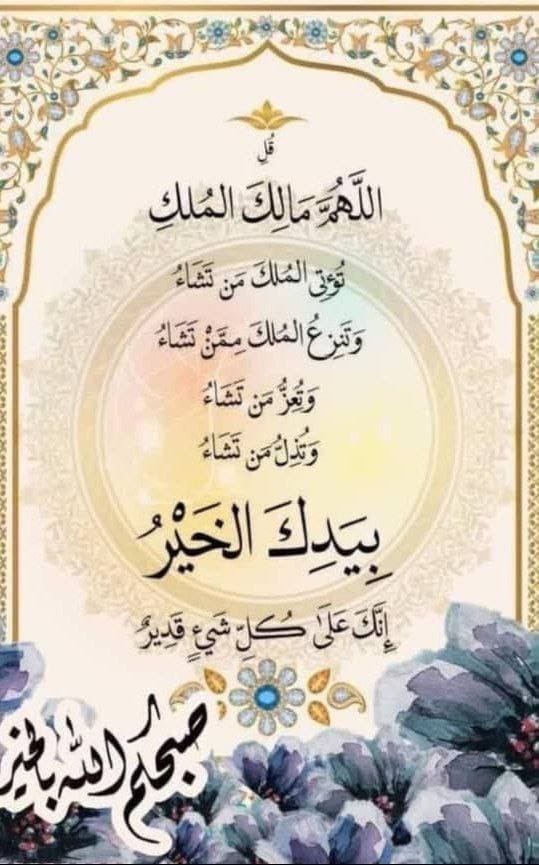 قُلِ
اللَّهُمَّ مَالِكَ المُلكِ
تُؤتِي المُلكَ مَن تَشَاءُ
وَتَنزِعُ المُلكَ مِمَّنْ تَشَاءُ
وَتُعِزُّ مَن تَشَاءُ
وَتُذِلُّ مَن تَشَاءُ
بِيَدِكَ الخَيْرُ
إِنَّكَ عَلَىٰ كُلِّ شَيءٍ قَدِيرٌ
صبحكم الله بالخير